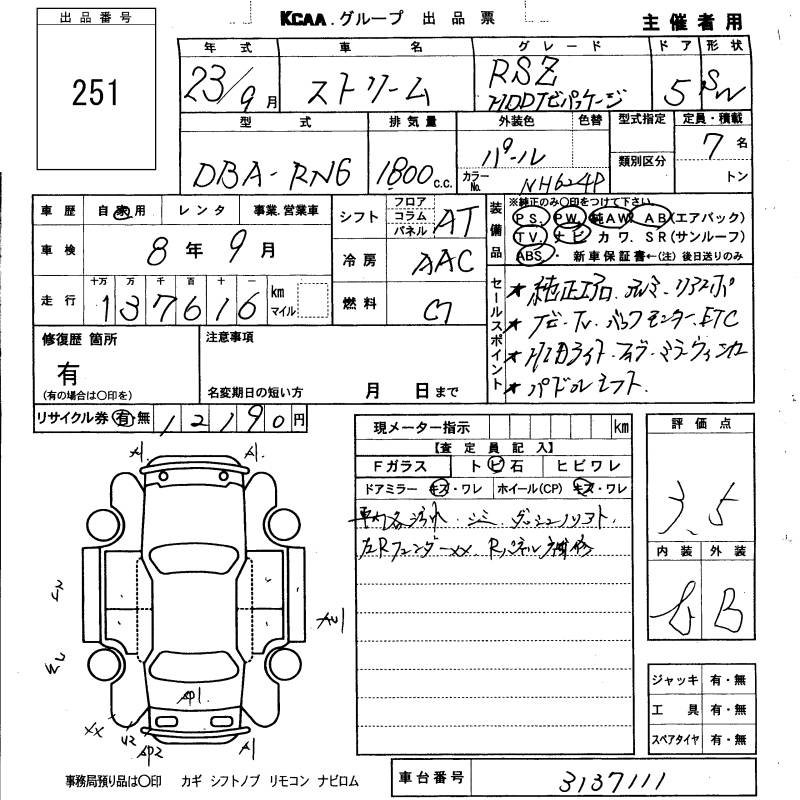 出品番号
251
KCAA.グループ 出品票
主催者用
年式 車名 グレード ドア 形状
23/9月 ストリーム RSZ HDDナビパッケージ 5 SW
型式 排気量 外装色 色替 型式指定 定員・積載
DBA-RN6 1800c.c. パール カラーNo. NH624P 類別区分 7名 トン
車歴 自家用 レンタ 事業.営業車
車検 8年9月
走行 十万 万 千 百 十 一
137616 km マイル
シフト フロア コラム パネル AT
冷房 AAC
燃料 ガ
装備品 ※純正のみ○印をつけて下さい。
PS. PW. 純AW. AB(エアバック)
TV. ナビ カワ. SR(サンルーフ)
ABS. ・ 新車保証書←(注)後日送りのみ
セールスポイント
★純正エアロ.アルミ.リアスポ
★ナビ.TV.バックモニター.ETC
★HIDライト.フォグ.ミラーウィンカー
★パドルシフト.
修復歴 箇所
有
(有の場合は○印を)
注意事項
名変期日の短い方 月 日まで
リサイクル券 有 無 12190円
現メーター指示 km
【査定員記入】
Fガラス トビ石 ヒビワレ
ドアミラー キズ・ワレ ホイール(CP) キズ・ワレ
車内各汚れ.シミ.ダッシュソリスト
左Rフェンダーxx.Rパネル補修
評価点
3.5
内装 外装
B
ジャッキ 有・無
工具 有・無
スペアタイヤ 有・無
A1. A1.
AU1
AP1.
XX U2 AP2 A1
事務局預り品は○印 カギ シフトノブ リモコン ナビロム
車台番号 3137111